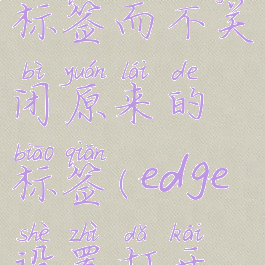 标签而不关
bì yuán lái de
闭原来的
biāo qiān
标签(edge
shè zhì dǎ kāi
设置打开